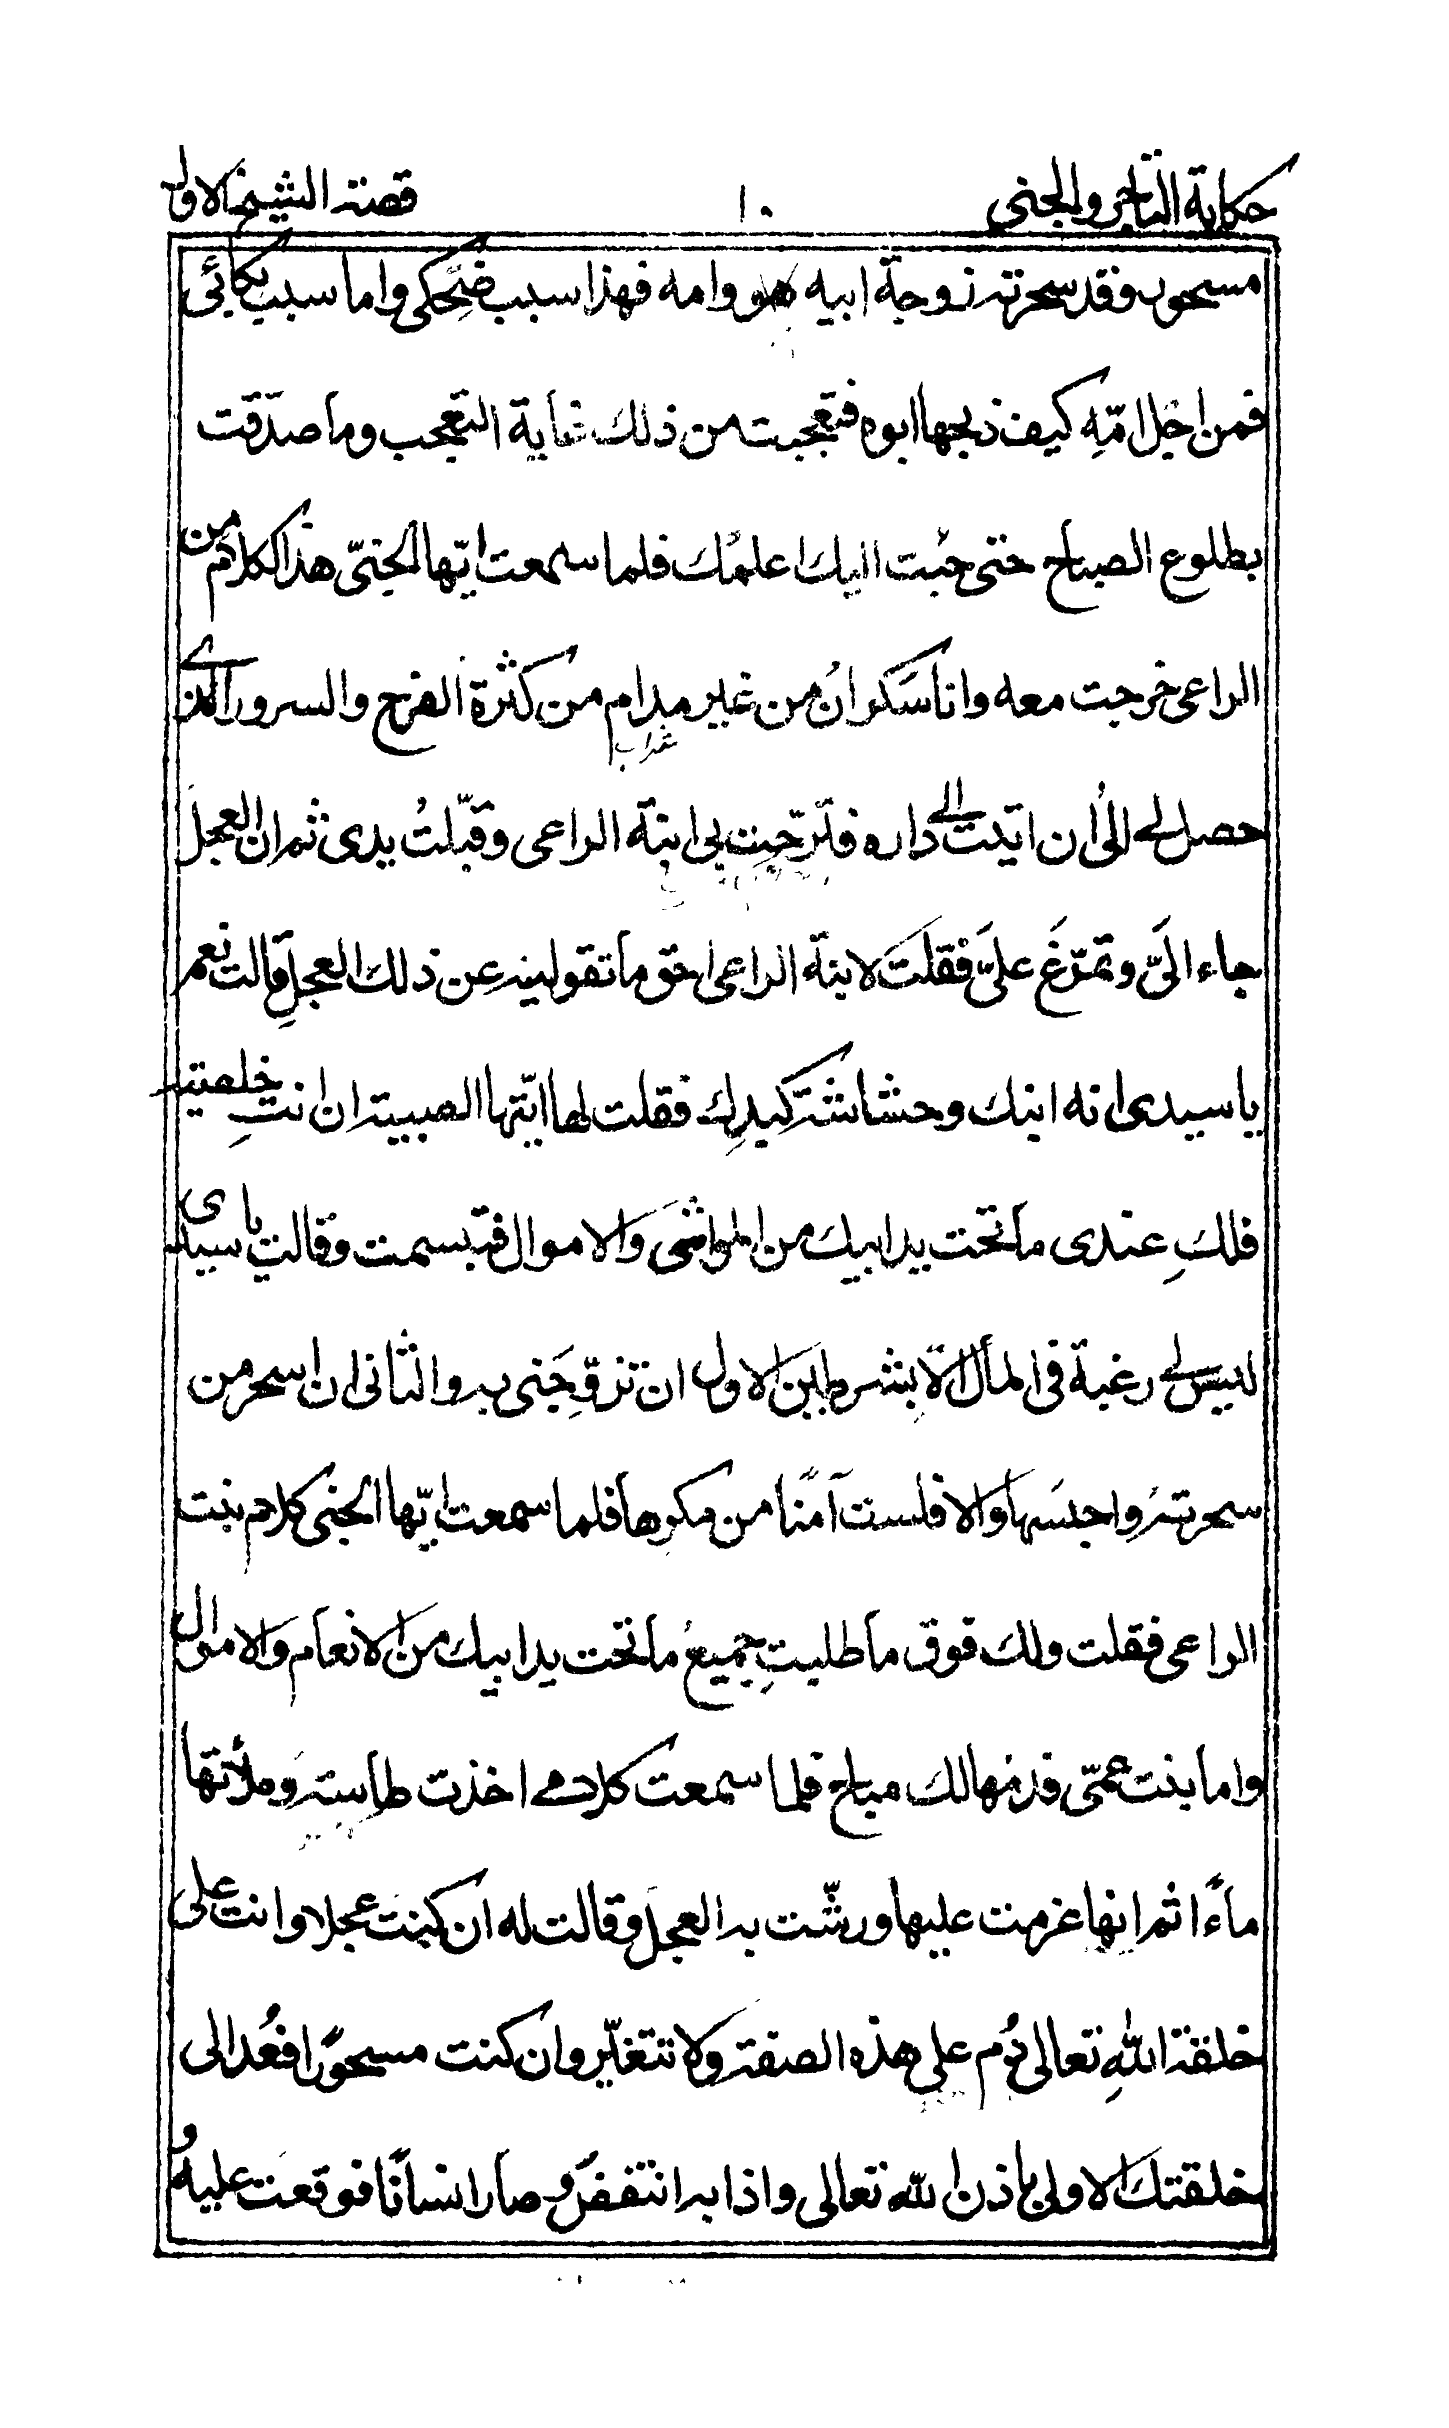 حكاية التاجر والجني ١٠ قصة الشيخ الاول
مسحور وقد سحرته زوجة ابيه هو وامه فهذا سبب ضحكى واما سبب بكائى
فمن اجل امّهِ كيف ذبحها ابوه فتعجبت من ذلك غاية التعجب وما صدّقت
بطلوع الصباح حتى جئت اليك اعلمك فلما سمعت ايّها الجنىّ هذا الكلام من
الراعى خرجت معه وانا سكرانُ من غير مدام من كثرة الفرح والسرور الذى
شراب
حصل لى الى ان اتيت الى داره فترحّبت بى ابنة الراعى وقبّلتُ يدى ثم ان العجل
جاء الىّ وتمرّغ علىّ فقلت لابنة الراعى احق ما تقولينه عن ذلك العجل قالت نعم
ياسيدى انه ابنك وحشاشة كبدك فقلت لها ايّتها الصبية ان انتِ خلصتيه
فلكِ عندى ما تحت يد ابيك من المواشى والاموال فتبسمت وقالت ياسيدى
ليس لى رغبة فى المال الّا بشرطين الاول ان تزوّجنى به والثانى ان اسحر من
سحرته واحبسها والا فلست آمنًا من مكرها فلما سمعت ايّها الجنى كلام بنت
الراعى فقلت ولك فوق ما طلبتِ جميعُ ما تحت يد ابيك من الانعام والاموال
واما بنت عمّى فدمها لك مباح فلما سمعت كلامى اخذت طاسة وملأتها
ماءً ثم انها عزمت عليها ورشّت به العجل وقالت له ان كنت عجلا وانت على
خلقة اللهِ تعالى دُم على هذه الصفة ولا تتغيّر وان كنت مسحورًا فعُد الى
خلقتك الاولى باذن الله تعالى واذا به انتفض وصار انسانًا فوقعت عليه و